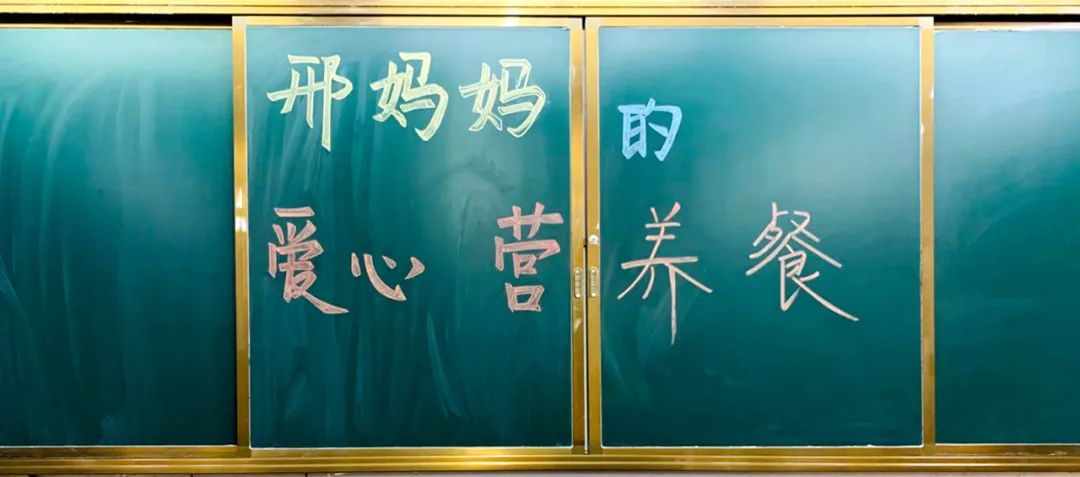 邢妈妈的
爱心营养餐